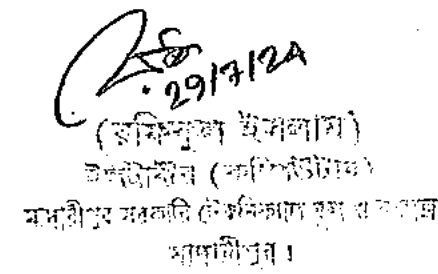 29/7/24
(রফিকুল ইসলাম)
ইন্সট্রাক্টর (কম্পিউটার)
মাদারীপুর সরকারি টেকনিক্যাল স্কুল ও কলেজ
মাদারীপুর।